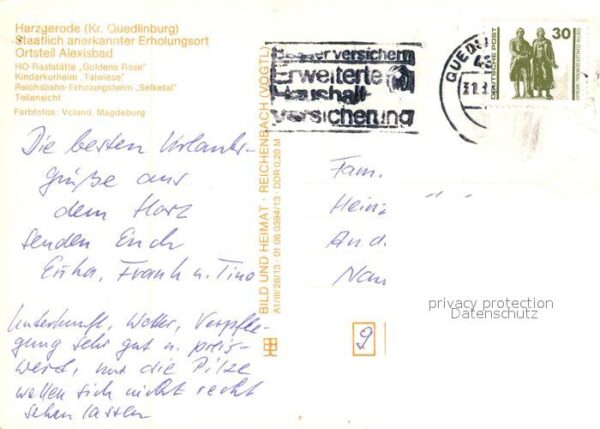 Harzgerode (Kr. Quedlinburg)
Staatlich anerkannter Erholungsort
Ortsteil Alexisbad
HO-Raststätte „Goldene Rose"
Kinderkurheim „Talwiese"
Reichsbahn-Erholungsheim „Selketal"
Teilansicht
Farbfotos: Voland, Magdeburg
Die besten Urlaubs-
grüße aus
dem Harz
senden Euch
Frank u. Tino
Unterkunft, Wetter, Verpfle-
gung sehr gut u. preis-
wert, nur die Pilze
wollen sich nicht recht
sehen lassen
BILD UND HEIMAT · REICHENBACH (VOGTL)
A1/III/26/13 · 01 08 0394/13 · DDR 0,20 M
versichern
Erweiterte
Haushalt-
versicherung
QUED
43
31.
DEUTSCHE POST
30
Fam.
Hein
And
Nau
privacy protection
Datenschutz
9